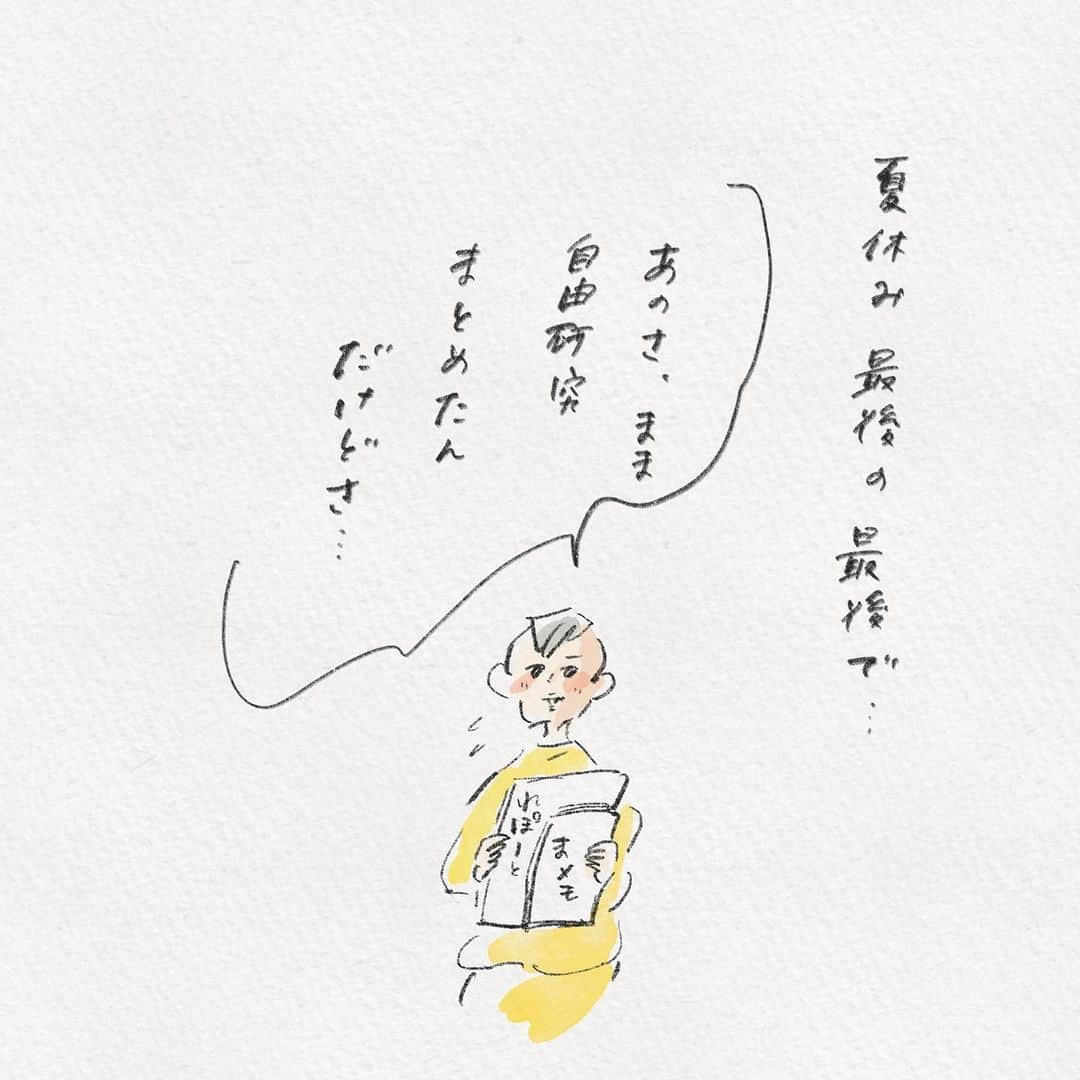 夏休み 最後の 最後で…
あのさ、まま
自由研究
まとめたん
だけどさ…
れぽーと
まメモ